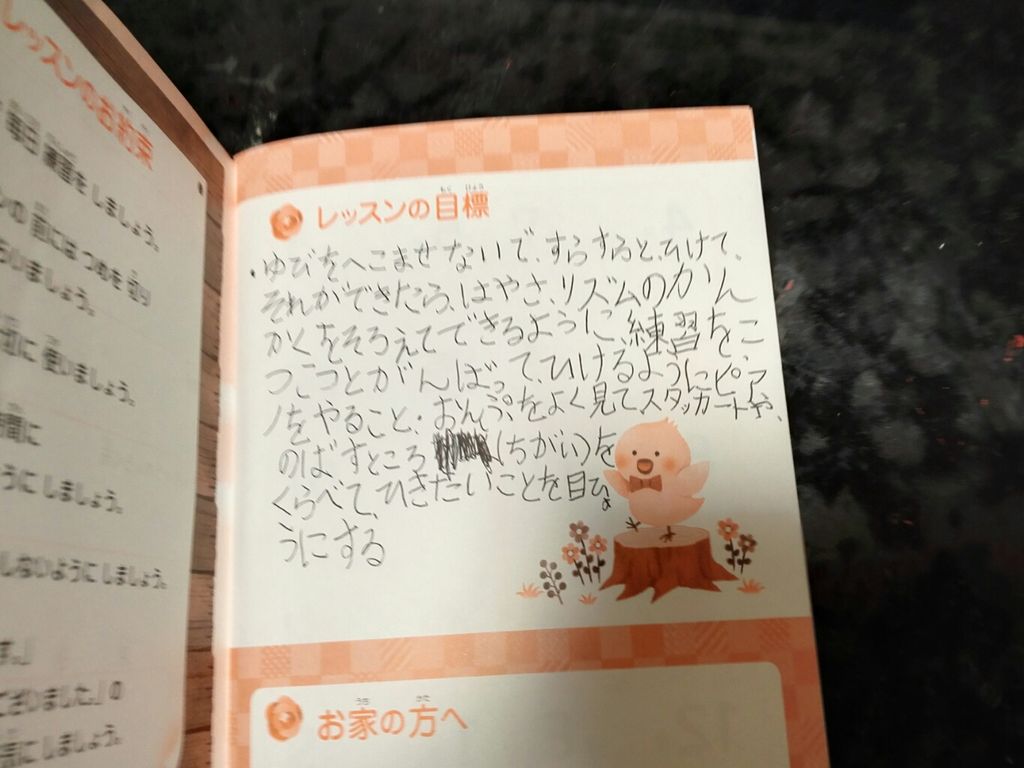 レッスンのお約束
毎日 練習を しましょう。
の 前には つめを 切り
いましょう。
切に 使いましょう。
時間に
うに しましょう。
しないように しましょう。
す。」
ございました。」の
にしましょう。
レッスンの目標
・ゆびをへこませないで、すらすらと、ひけて、
それができたら、はやさ、リズムのかん
かくをそろえてできるように、練習をこ
つこつとがんばって、ひけるようにピア
ノをやること・おんぷをよく見て、スタッカートや、
のばすところ(ちがい)を
くらべて、ひきたいことを目ひょ
うにする
お家の方へ